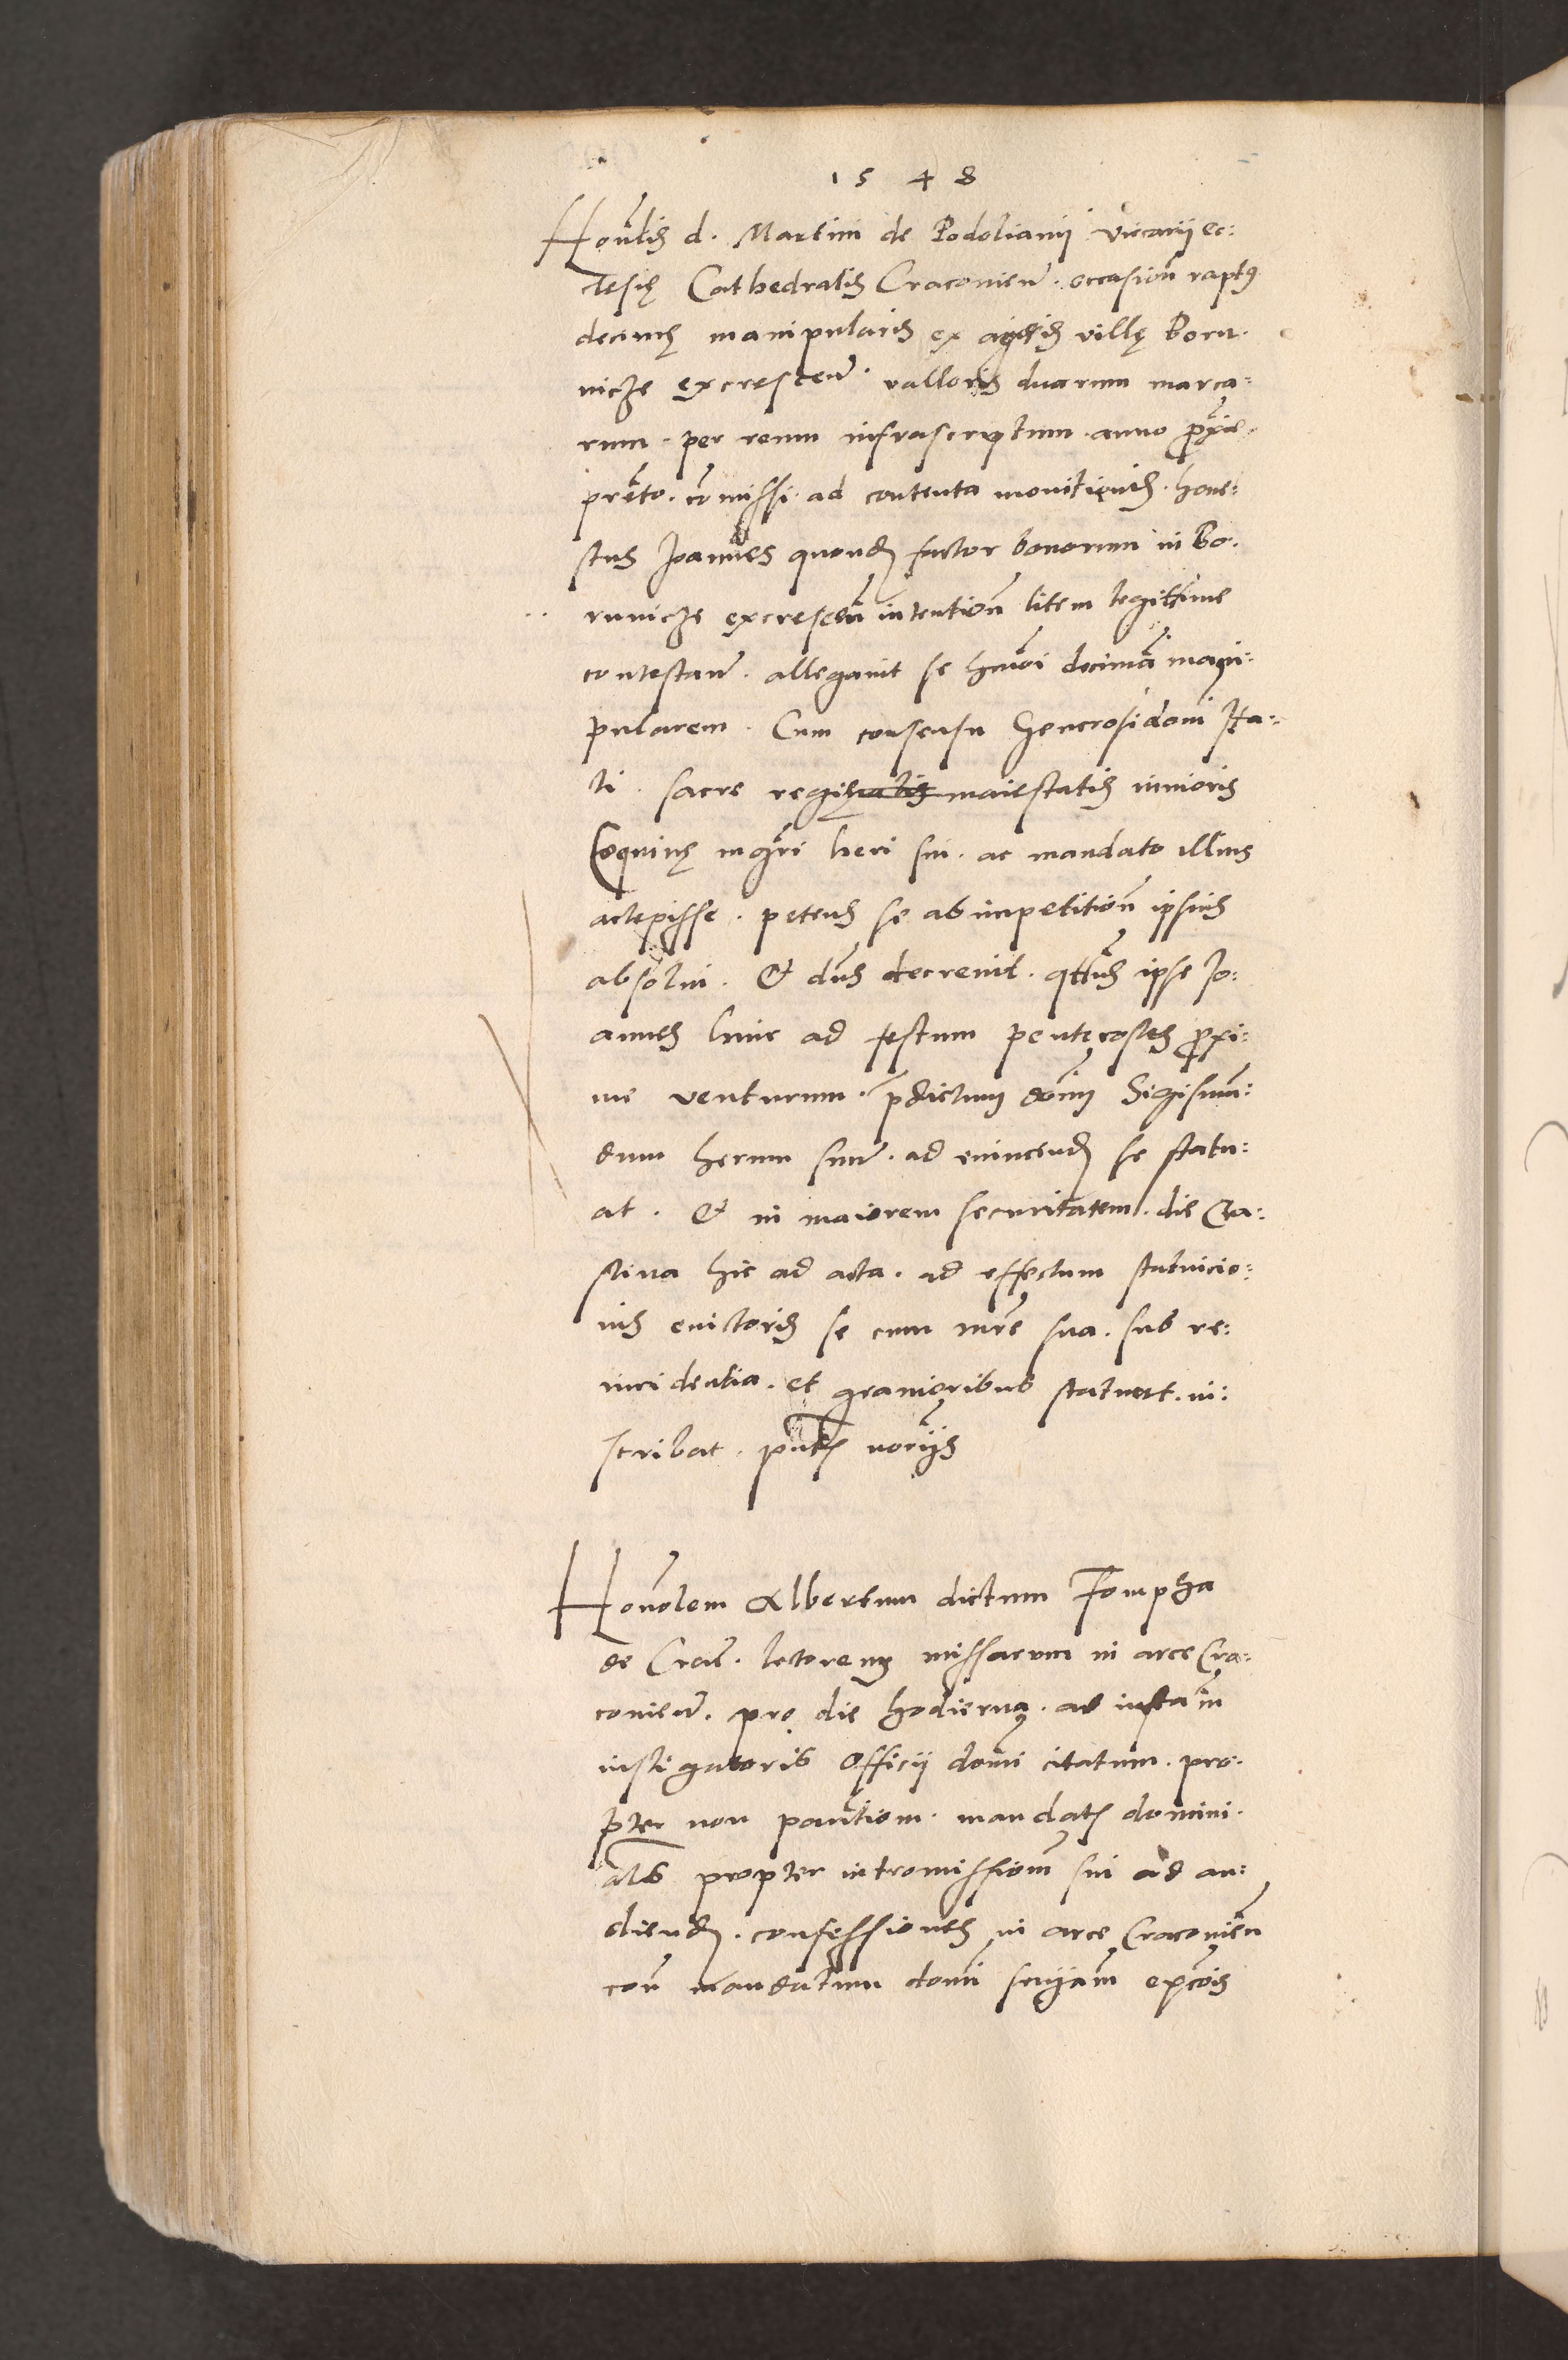 1548
Honlis d. Martini de Podolianij vicarij ec:
clesię Cathedralis Cracovien. occasion raptus
decimę manipularis ex agris villę Boru.
nicze excrescen. valloris duarum marca:
rum. per reum infrascriptum. anno prox
preto. comissi. ad contenta monitionis. hone:
stus Joannes quond factor bonorum in Bo.
runicze excrescen intention litem legittime
contestan. allegavit se hmoi decimã mani:
pularem. Cum consensu Generosi domi Ita:
li. sacre regię maiestatis iunioris
Coquinę mgri heri sui. ac mandato illius
accepisse. petens se ab impetition ipsius
absolvi. Et dns decrevit. qtus ipse Jo:
annes hinc ad festum pentecostes proxi:
me venturum. pdictum domi Sigismũ:
dum herum suum. ad evincend se statu:
at. Et in maiorem securitatem. die Cra:
stina hic ad acta. ad effectum statuicio:
nis evictoris se cum mre sua. sub re:
incidentia. et gravioribus statuet. in:
scribat. pntibus norijs
Honolem Albertum dictum Fompha
de Crac. lectorem missarum in arce Cra:
covien. pro die hodierna. ad instam
instigatoris Officij domi citatum. pro:
pter non paritiom. mandatis domini.
als propter intromissionem sui ad au:
diend. confessiones in arce Cracovien
con mandatum domi epcois